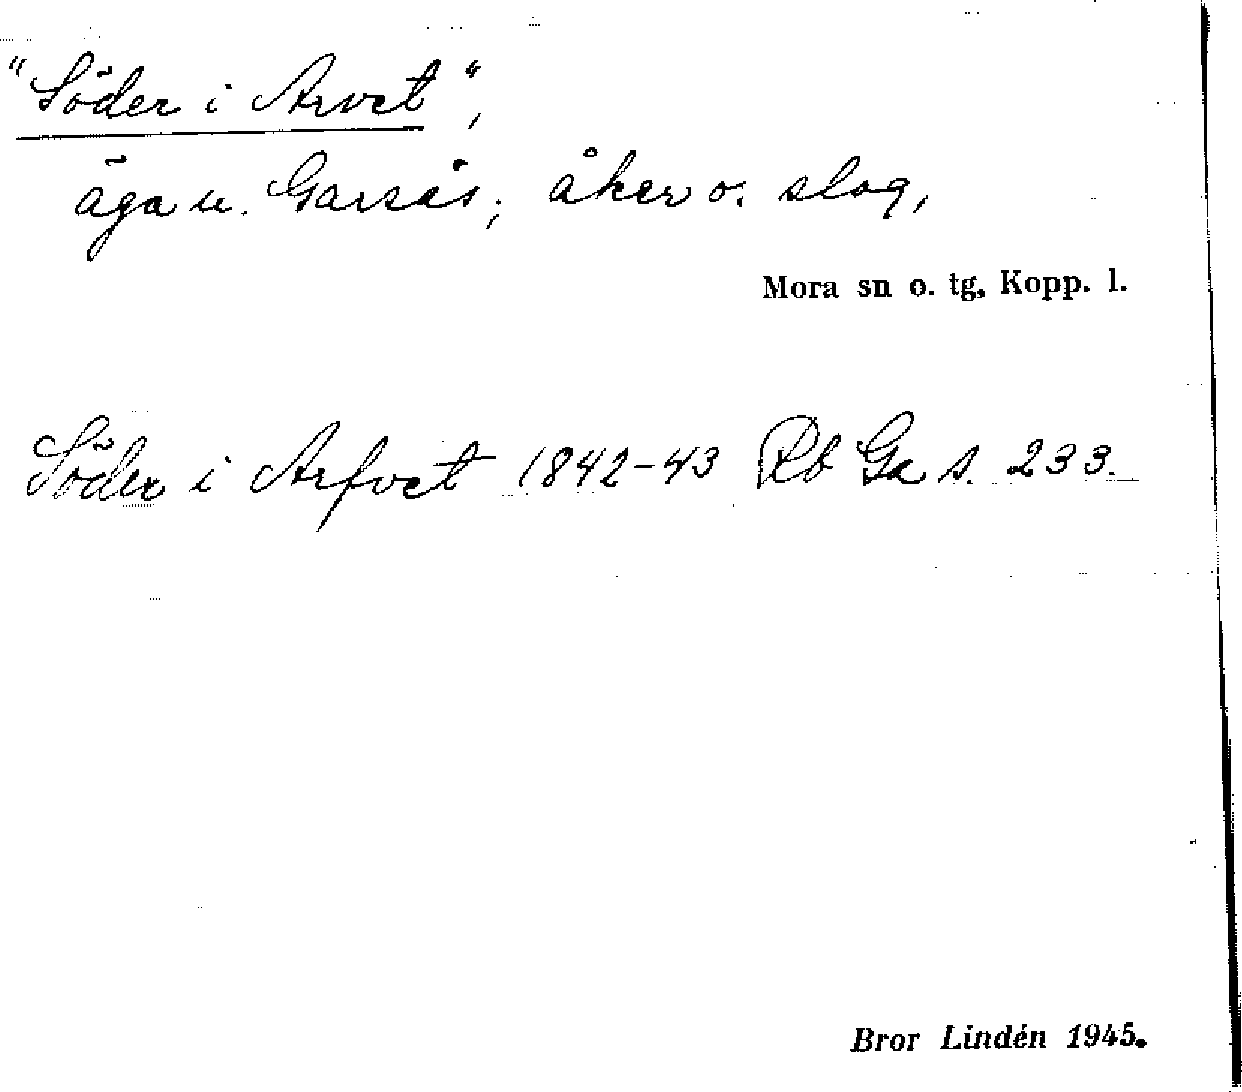 "Söder i Arvet",
äga u. Garsås; åker o. slog,
Mora sn o. tg, Kopp. l.
Söder i Arfvet 1842-43 Rb Ga s. 233.
Bror Lindén 1945.